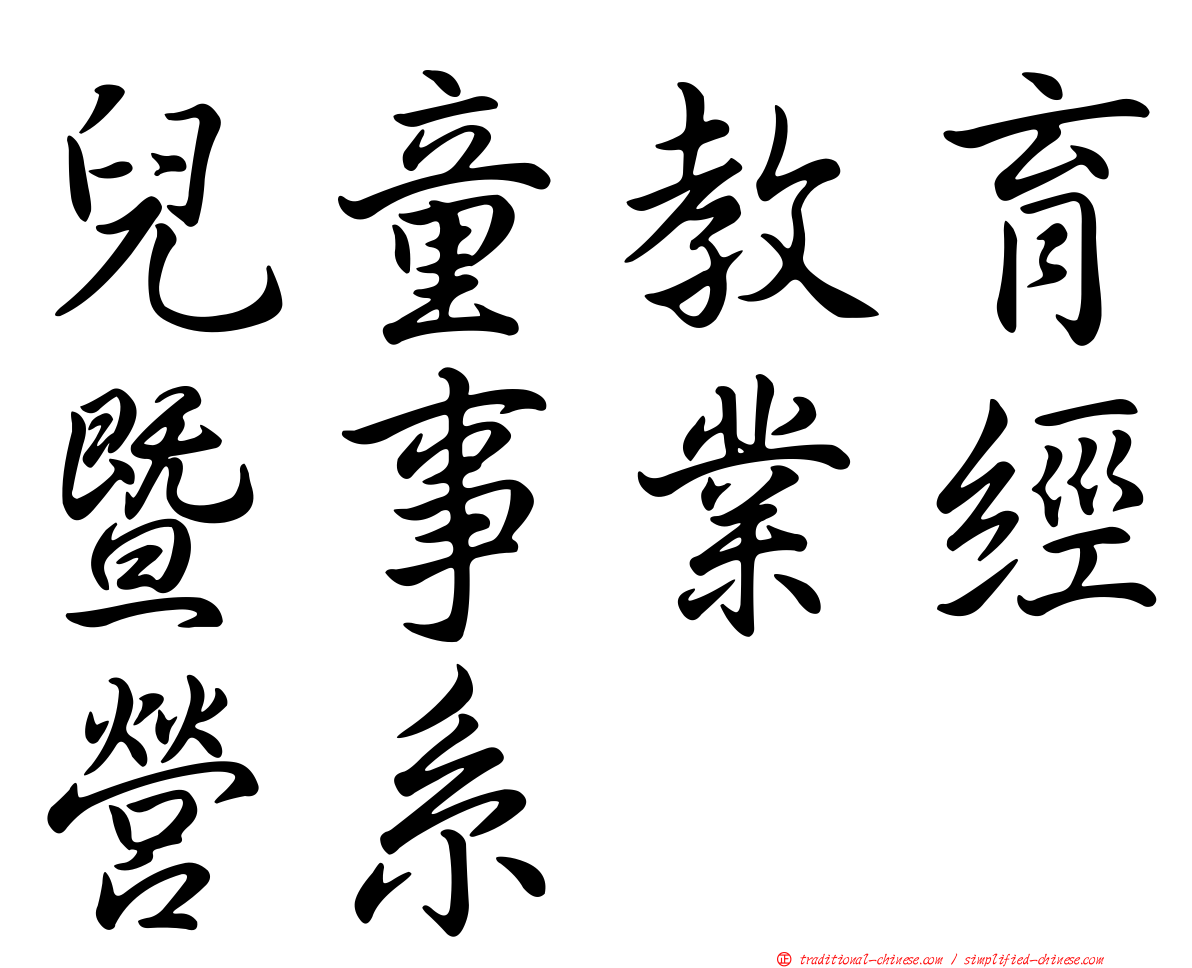 兒童教育
暨事業經
營系
正 traditional-chinese.com / simplified-chinese.com